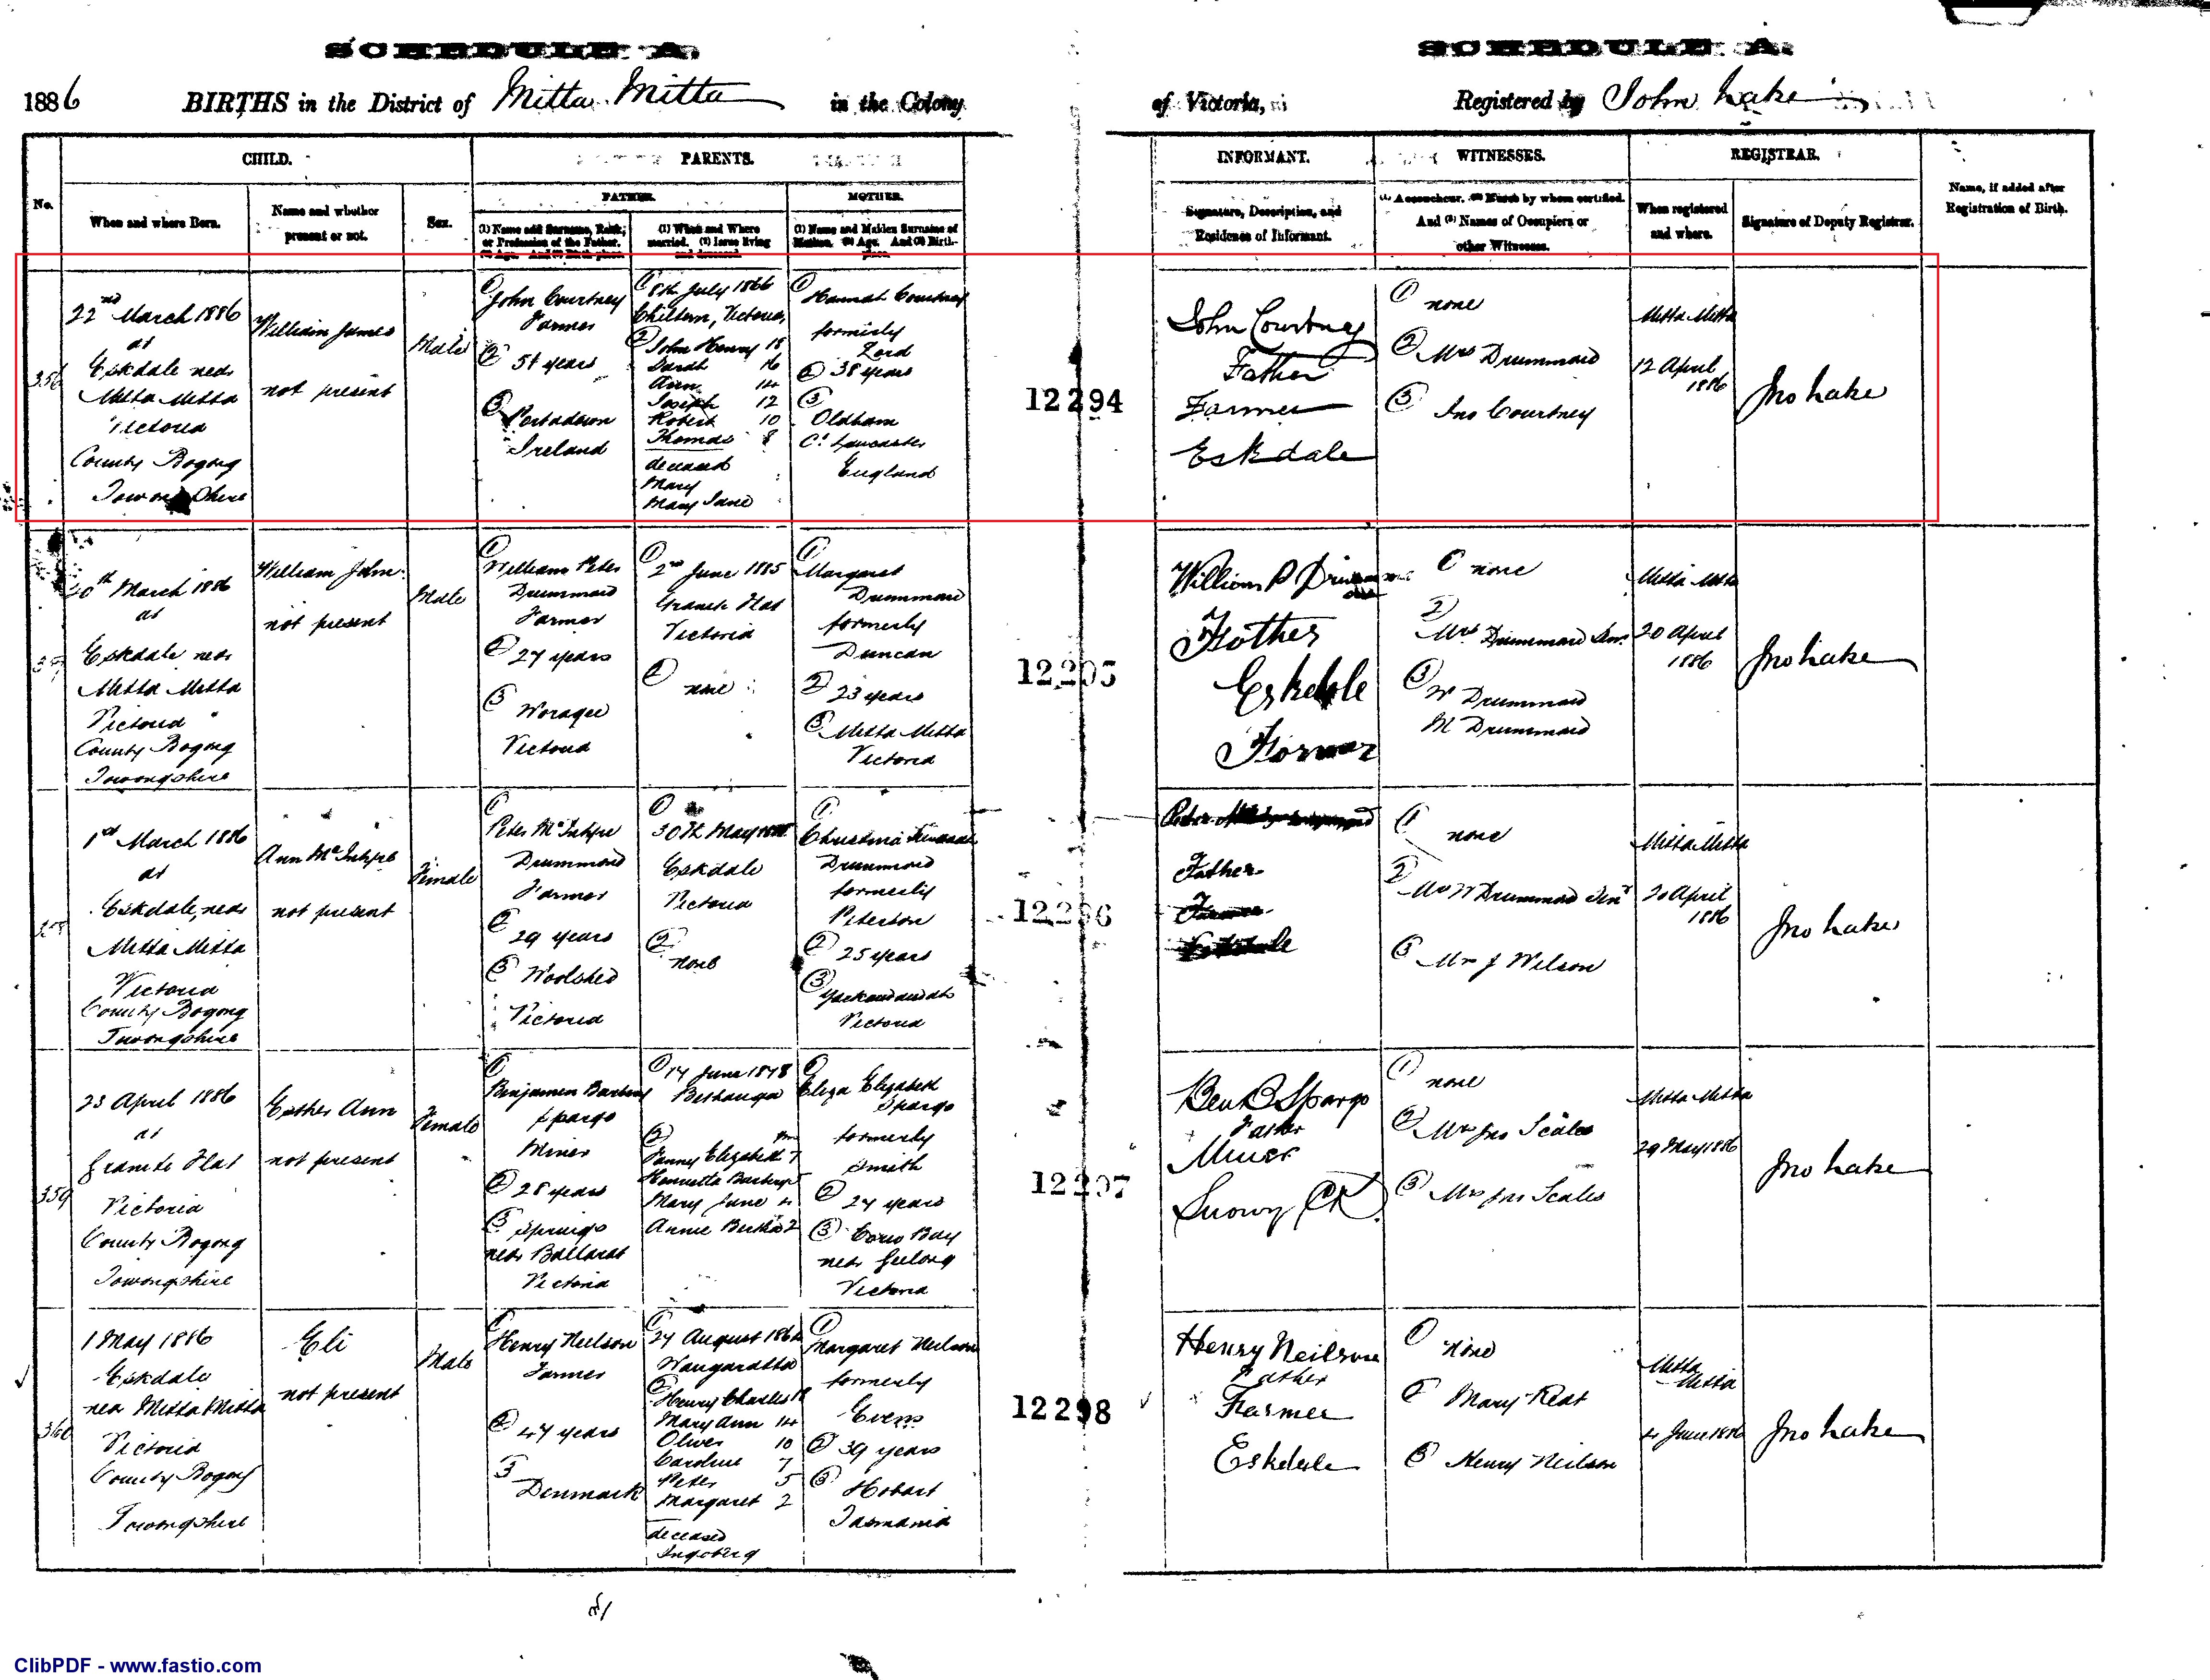 SCHEDULE A.
SCHEDULE A.
1886 BIRTHS in the District of Mitta Mitta in the Colony of Victoria, Registered by John Lake
No.
CHILD.
When and where Born.
Name and whether present or not.
Sex.
PARENTS.
FATHER.
(1) Name and Surname, Rank, or Profession of the Father. (2) Age. And (3) Birth-place.
(1) When and Where married. (2) Issue living and deceased.
MOTHER.
(1) Name and Maiden Surname of Mother. (2) Age. And (3) Birth-place.
INFORMANT.
Signature, Description, and Residence of Informant.
WITNESSES.
(1) Accoucheur. (2) Nurse by whom certified. And (3) Names of Occupiers or other Witnesses.
REGISTRAR.
When registered and where.
Signature of Deputy Registrar.
Name, if added after Registration of Birth.
356
22nd March 1886
at
Eskdale near
Mitta Mitta
Victoria
County Bogong
Towong Shire
William James
not present
Male
(1) John Courtney
Farmer
(2) 51 years
(3) Portadown
Ireland
(1) 8th July 1866
Chiltern, Victoria,
(2) John Henry 18
Sarah 16
Ann 14
Joseph 12
Robert 10
Thomas 8
deceased
Mary
Mary Jane
(1) Hannah Courtney
formerly
Lord
(2) 38 years
(3)
Oldham
Co. Lancaster
England
12294
John Courtney
Father
Farmer
Eskdale
(1) none
(2) Mrs Drummond
(3) Jno Courtney
Mitta Mitta
12 April
1886
Jno Lake
357
March 1886
at
Eskdale near
Mitta Mitta
Victoria
County Bogong
Towongshire
William John
not present
Male
(1)
William Peter
Drummond
Farmer
(2) 27 years
(3) Woragee
Victoria
(1)
2nd June 1885
Granite Flat
Victoria
(2) none
(1)
Margaret
Drummond
formerly
Duncan
(2) 23 years
(3) Mitta Mitta
Victoria
12295
William P
Father
Eskdale
Farmer
(1) none
(2)
Mrs Drummond Senr
(3) W Drummond
M Drummond
Mitta Mitta
20 April
1886
Jno Lake
358
1st March 1886
at
Eskdale, near
Mitta Mitta
Victoria
County Bogong
Towongshire
Ann McIntyre
not present
Female
(1)
Peter McIntyre
Drummond
Farmer
(2)
29 years
(3) Woolshed
Victoria
(1)
30th May
Eskdale
Victoria
(2)
none
(1)
Christina
Drummond
formerly
Peterson
(2)
25 years
(3)
Yackandandah
Victoria
12296
Peter
Father
Farmer
Eskdale
(1)
none
(2)
Mrs W Drummond Senr
(3) Mrs J Wilson
Mitta Mitta
20 April
1886
Jno Lake
359
23 April 1886
at
Granite Flat
Victoria
County Bogong
Towongshire
Esther Ann
not present
Female
(1)
Benjamin
Spargo
Miner
(2) 28 years
(3) Springs
near Ballarat
Victoria
(1) 14 June 1878
Bethanga
(2)
Fanny Elizabeth 7
Henrietta
Mary June 4
Annie Bertha 2
(1)
Eliza Elizabeth
Spargo
formerly
Smith
(2) 24 years
(3) Corio Bay
near Geelong
Victoria
12297
Ben B Spargo
Father
Miner
Snowy Ck
(1) none
(2) Mrs Jno Scales
(3) Mrs Jno Scales
Mitta Mitta
29 May 1886
Jno Lake
360
1 May 1886
Eskdale
near Mitta Mitta
Victoria
County Bogong
Towongshire
Eli
not present
Male
(1)
Henry Neilson
Farmer
(2) 47 years
(3)
Denmark
(1)
27 August
Wangaratta
(2)
Henry Charles
Mary Ann 14
Oliver 10
Caroline 7
Peter 5
Margaret 2
deceased
Ingoberg
(1)
Margaret Neilson
formerly
Evens
(2) 39 years
(3)
Hobart
Tasmania
12298
Henry Neilson
Father
Farmer
Eskdale
(1) none
(2) Mary Keat
(3) Henry Neilson
Mitta
Mitta
4 June 1886
Jno Lake
ClibPDF - www.fastio.com